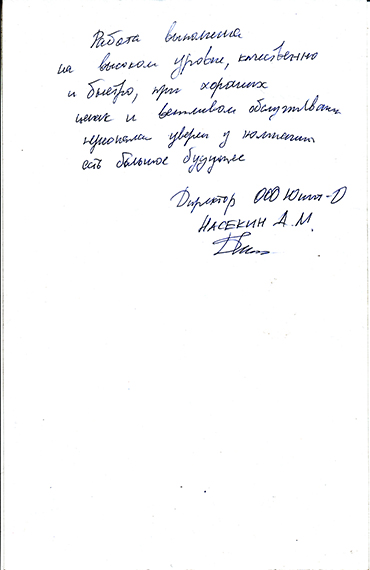 Работа выполнена
на высоком уровне, качественно
и быстро, при хороших
ценах и вежливом обслуживании
персонала уверен у компании
есть большое будущее
Директор ООО Юнит-D
НАСЕКИН Д.М.